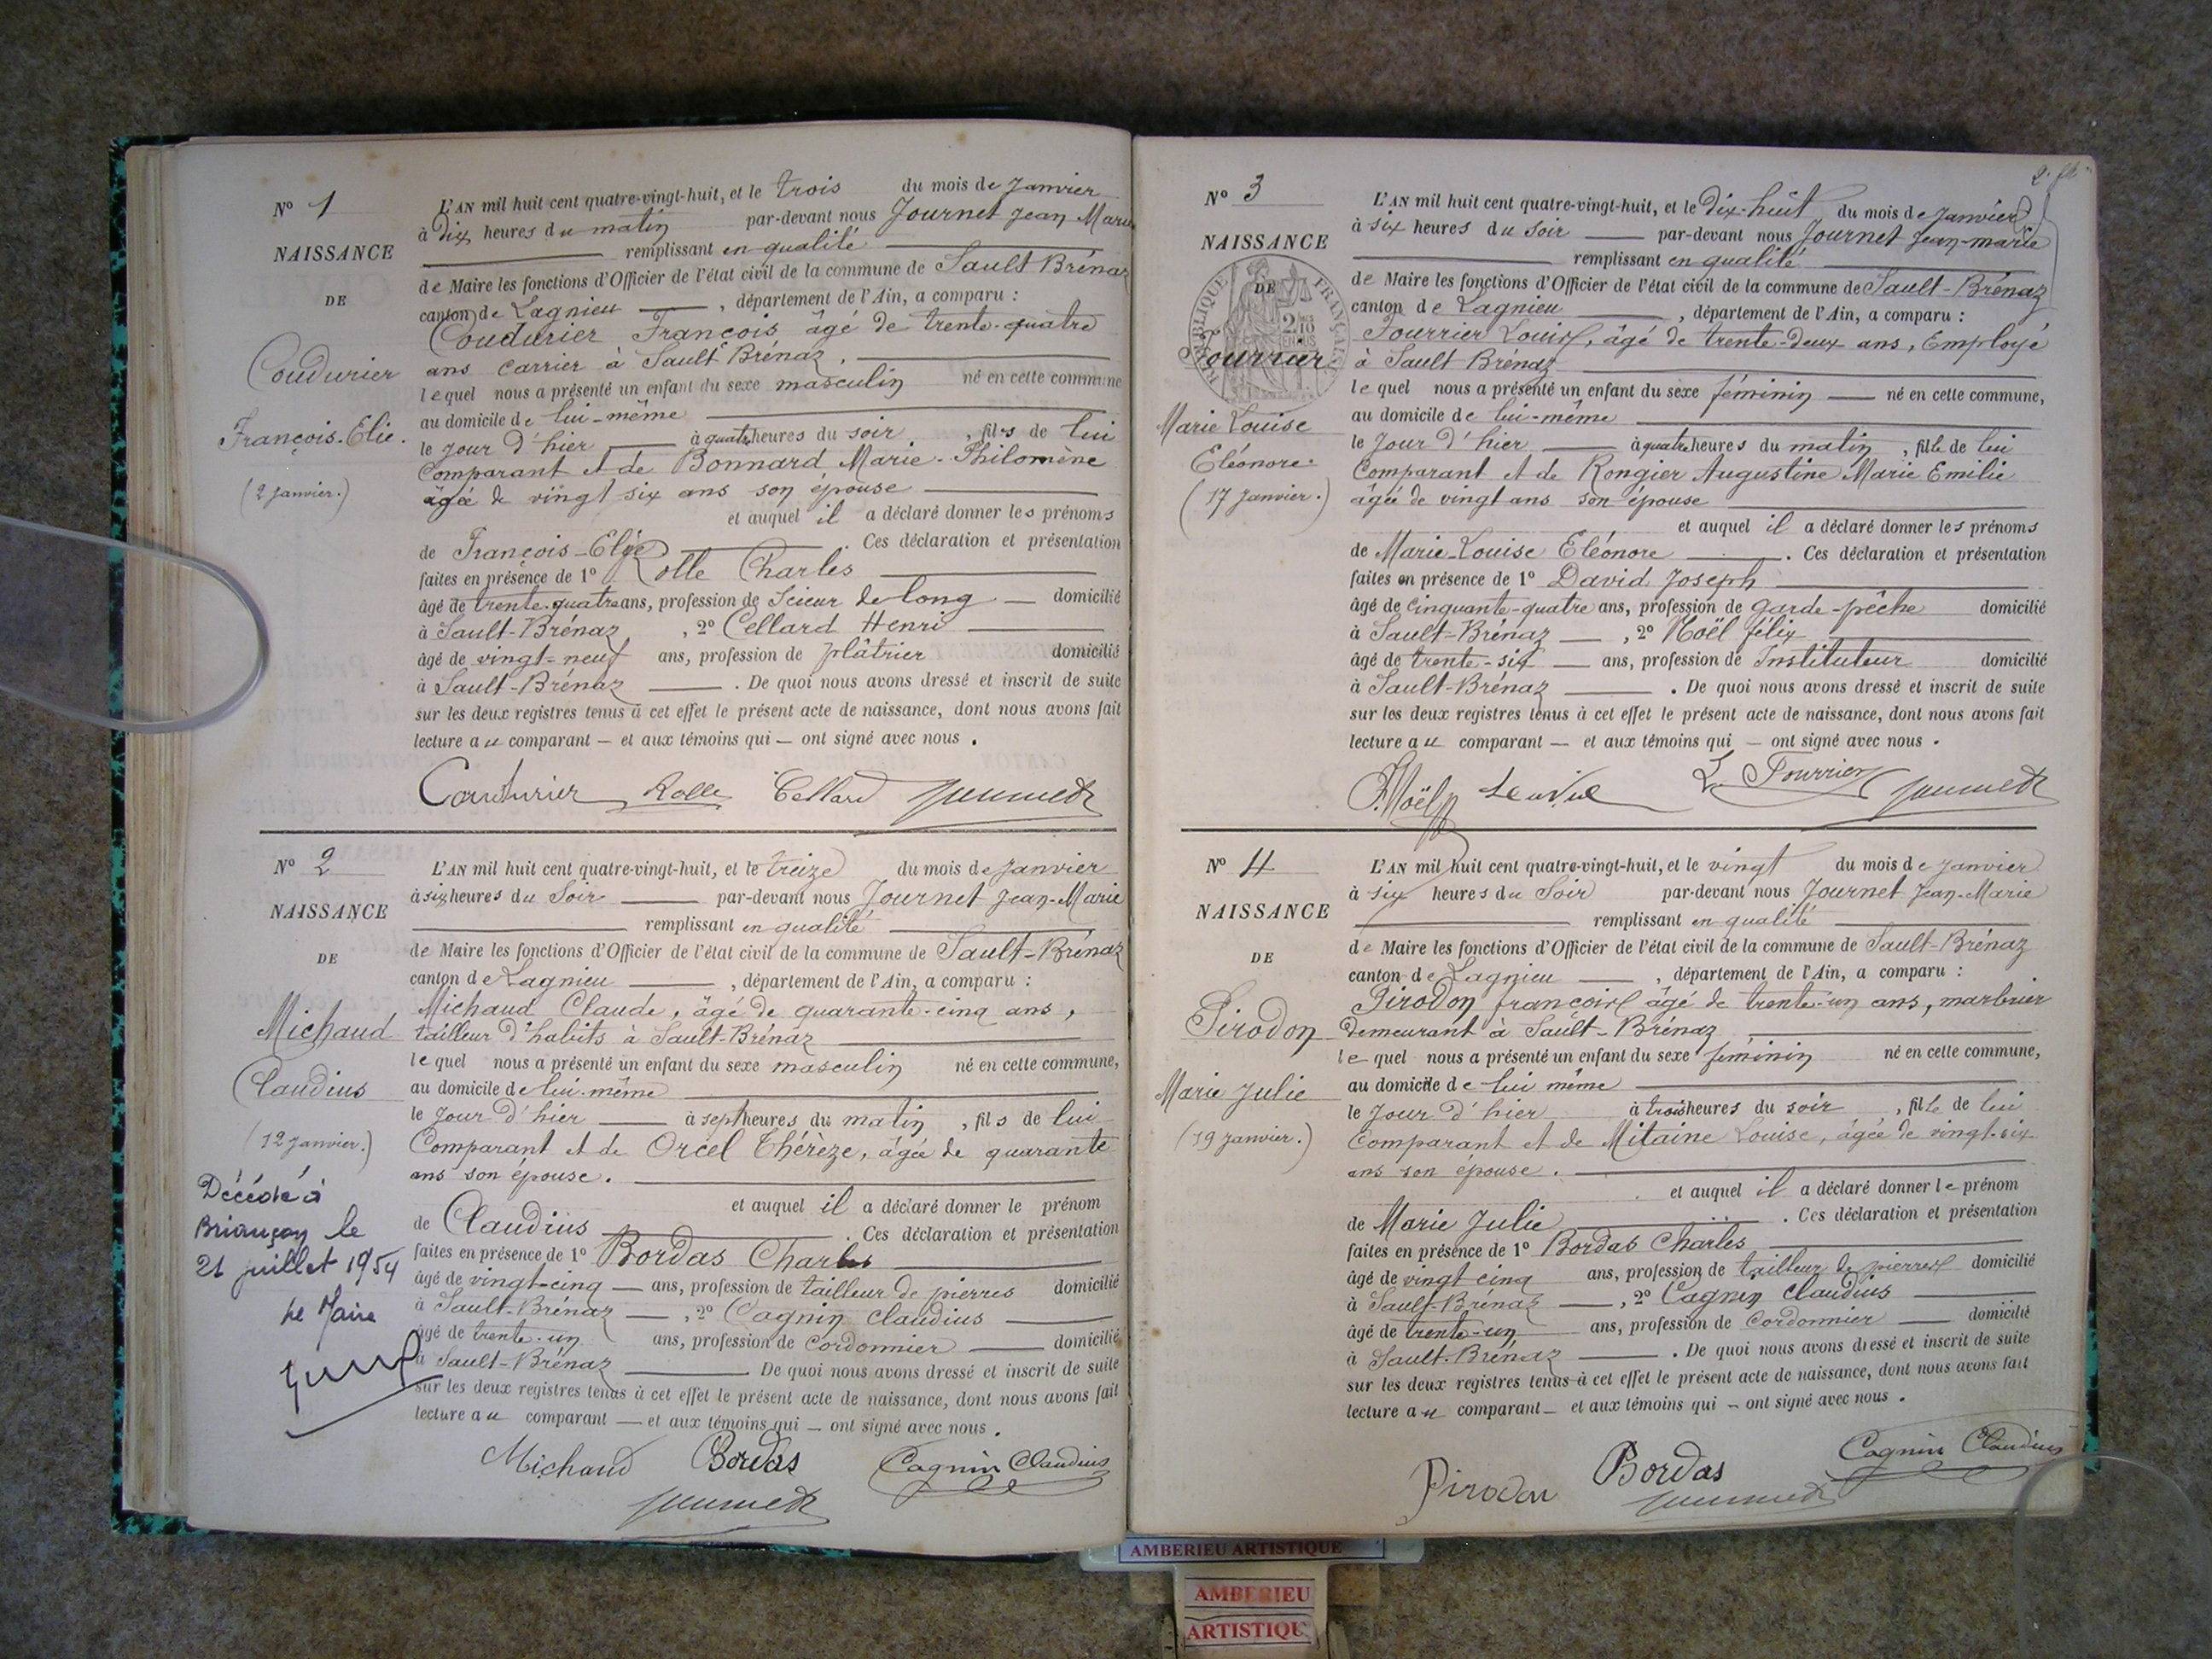 N° 1
NAISSANCE
DE
Coudurier
François-Elie.
(2 Janvier.)
L'AN mil huit cent quatre-vingt-huit, et le trois du mois de Janvier
à Dix heures du matin par-devant nous Journet Jean Marie
remplissant en qualité
de Maire les fonctions d'Officier de l'état civil de la commune de Sault Brénaz
canton de Lagnieu , département de l'Ain, a comparu :
Coudurier François, âgé de trente-quatre
ans carrier à Sault Brénaz.
lequel nous a présenté un enfant du sexe masculin né en cette commune
au domicile de lui-même
le Jour d'hier à quatre heures du soir , fils de lui
Comparant et de Bonnard Marie-Philomène
âgée de vingt-six ans son épouse
et auquel il a déclaré donner les prénoms
de François-Elie . Ces déclaration et présentation
faites en présence de 1° Rolle Charles
âgé de trente-quatre ans, profession de Scieur de long domicilié
à Sault-Brénaz , 2° Cellard Henri
âgé de vingt-neuf ans, profession de plâtrier domicilié
à Sault-Brénaz . De quoi nous avons dressé et inscrit de suite
sur les deux registres tenus à cet effet le présent acte de naissance, dont nous avons fait
lecture au comparant — et aux témoins qui — ont signé avec nous .
Couturier Rolle Cellard Journet
N° 2
NAISSANCE
DE
Michaud
Claudius
(12 Janvier.)
Décédé à
Briançon le
21 juillet 1954
Le Maire
L'AN mil huit cent quatre-vingt-huit, et le treize du mois de Janvier
à six heures du Soir par-devant nous Journet Jean-Marie
remplissant en qualité
de Maire les fonctions d'Officier de l'état civil de la commune de Sault-Brénaz
canton de Lagnieu , département de l'Ain, a comparu :
Michaud Claude, âgé de quarante-cinq ans,
tailleur d'habits à Sault-Brénaz
lequel nous a présenté un enfant du sexe masculin né en cette commune,
au domicile de lui-même
le Jour d'hier à sept heures du matin , fils de lui
Comparant et de Orcel Thérèze, âgée de quarante
ans son épouse.
et auquel il a déclaré donner le prénom
de Claudius . Ces déclaration et présentation
faites en présence de 1° Bordas Charles
âgé de vingt-cinq — ans, profession de tailleur de pierres domicilié
à Sault-Brénaz — , 2° Cagnin Claudius
âgé de trente-un ans, profession de Cordonnier domicilié
à Sault-Brénaz De quoi nous avons dressé et inscrit de suite
sur les deux registres tenus à cet effet le présent acte de naissance, dont nous avons fait
lecture au comparant — et aux témoins qui — ont signé avec nous .
Michaud Bordas Cagnin Claudius
Journet
N° 3
NAISSANCE
DE
RÉPUBLIQUE FRANÇAISE
Fourrier
Marie Louise
Eléonore.
(17 Janvier.)
L'AN mil huit cent quatre-vingt-huit, et le Dix-huit du mois de Janvier
à six heures du Soir par-devant nous Journet Jean-Marie
remplissant en qualité
de Maire les fonctions d'Officier de l'état civil de la commune de Sault-Brénaz
canton de Lagnieu , département de l'Ain, a comparu :
Fourrier Louis, âgé de trente-deux ans, Employé
à Sault Brénaz
lequel nous a présenté un enfant du sexe féminin — né en cette commune,
au domicile de lui-même
le Jour d'hier à quatre heures du matin , fille de lui
Comparant et de Rongier Augustine Marie Emilie
âgée de vingt ans son épouse
et auquel il a déclaré donner les prénoms
de Marie-Louise Eléonore . Ces déclaration et présentation
faites en présence de 1° David Joseph
âgé de Cinquante-quatre ans, profession de garde-pêche domicilié
à Sault-Brénaz — , 2° Noël félix
âgé de trente-six — ans, profession de Instituteur domicilié
à Sault-Brénaz . De quoi nous avons dressé et inscrit de suite
sur les deux registres tenus à cet effet le présent acte de naissance, dont nous avons fait
lecture au comparant — et aux témoins qui — ont signé avec nous .
F. Noël L. Fourrier Journet
N° 4
NAISSANCE
DE
Pirodon
Marie Julie
(19 Janvier.)
L'AN mil huit cent quatre-vingt-huit, et le vingt du mois de Janvier
à six heures du Soir par-devant nous Journet Jean-Marie
remplissant en qualité
de Maire les fonctions d'Officier de l'état civil de la commune de Sault-Brénaz
canton de Lagnieu , département de l'Ain, a comparu :
Pirodon françois âgé de trente-un ans, marbrier
demeurant à Sault-Brénaz
lequel nous a présenté un enfant du sexe féminin né en cette commune,
au domicile de lui même
le Jour d'hier à trois heures du soir , fille de lui
Comparant et de Mitaine Louise, âgée de vingt-six
ans son épouse.
et auquel il a déclaré donner le prénom
de Marie Julie . Ces déclaration et présentation
faites en présence de 1° Bordas Charles
âgé de vingt cinq ans, profession de tailleur de pierres domicilié
à Sault-Brénaz — , 2° Cagnin Claudius
âgé de trente-un ans, profession de Cordonnier — domicilié
à Sault-Brénaz . De quoi nous avons dressé et inscrit de suite
sur les deux registres tenus à cet effet le présent acte de naissance, dont nous avons fait
lecture au comparant — et aux témoins qui — ont signé avec nous .
Pirodon Bordas Cagnin Claudius
Journet
AMBERIEU ARTISTIQUE
AMBERIEU
ARTISTIQU